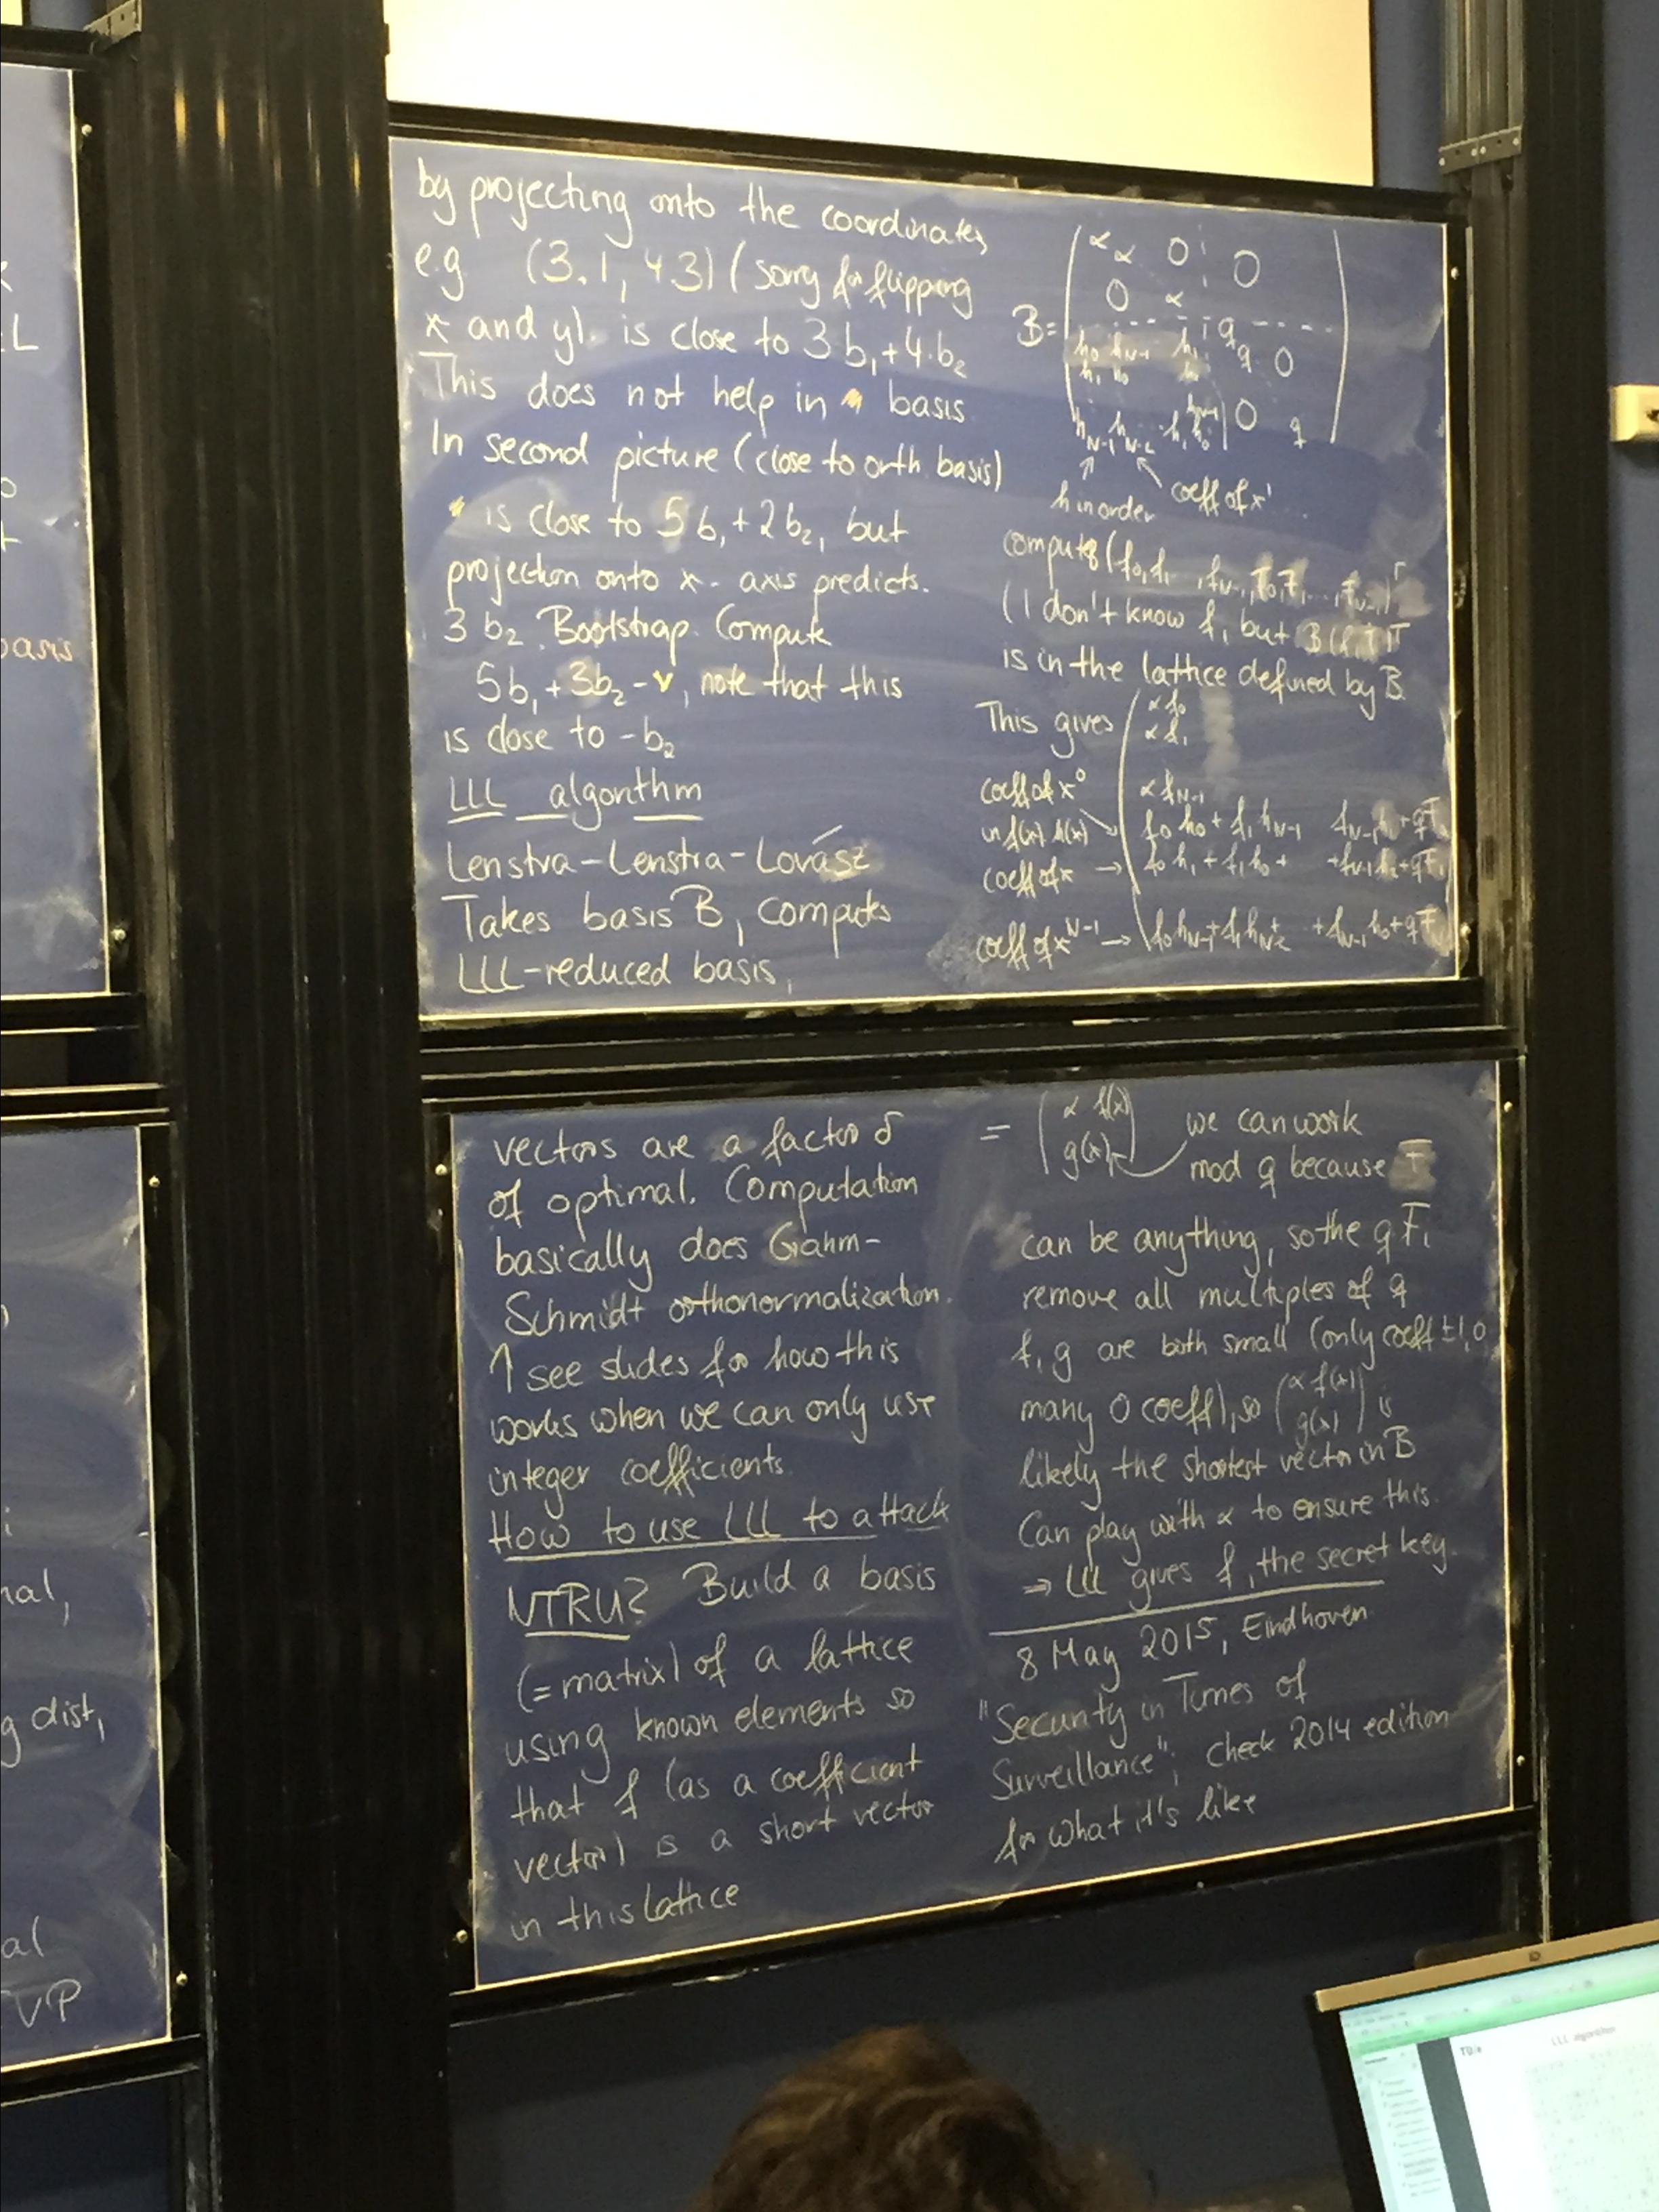 by projecting onto the coordinates,
e.g (3.1, 4.3) (sorry for flipping
x and y). is close to 3 b₁+4·b₂
This does not help in basis
In second picture (close to orth. basis)
is close to 5 b₁+2 b₂, but
projection onto x-axis predicts.
3 b₂. Bootstrap. Compute
5b₁+3b₂-v, note that this
is close to -b₂
LLL algorithm
Lenstra-Lenstra-Lovász
Takes basis B, computes
LLL-reduced basis,
B=
α 0 0
α
0 α
q
h₀ h_{N-1} h₁ q 0
h₁ h₀
h_{N-1}
h_{N-1} h_{N-2} h₁ h₀ 0 q
h in order
coeff of x¹
compute (f₀,f₁ ,f_{N-1},F₀,F₁...,F_{N-1})ᵀ
(I don't know f, but B(f,F)ᵀ
is in the lattice defined by B.
This gives
αf₀
αf₁
coeff of x⁰
αf_{N-1}
in f(x) h(x) → f₀h₀+f₁h_{N-1} f_{N-1}h₁+qF₀
coeff of x → f₀h₁+f₁h₀+ +f_{N-1}h₂+qF₁
coeff of x^{N-1} → f₀h_{N-1}+f₁h_{N-2}+ +f_{N-1}h₀+qF
vectors are a factor δ
of optimal. Computation
basically does Grahm-
Schmidt orthonormalization.
↑ see slides for how this
works when we can only use
integer coefficients.
How to use LLL to attack
NTRU? Build a basis
(=matrix) of a lattice
using known elements so
that f (as a coefficient
vector) is a short vector
in this lattice
= (α f(x)
g(x)) we can work
mod q because F
can be anything, so the qFᵢ
remove all multiples of q
f, g are both small (only coeff ±1,0
many 0 coeff), so (α f(x)
g(x)) is
likely the shortest vector in B
Can play with α to ensure this.
⇒ LLL gives f, the secret key.
8 May 2015, Eindhoven
"Security in Times of
Surveillance"; check 2014 edition
for what it's like
L
basis
nal,
g dist,
al
VP
TU/e
LLL algorithm